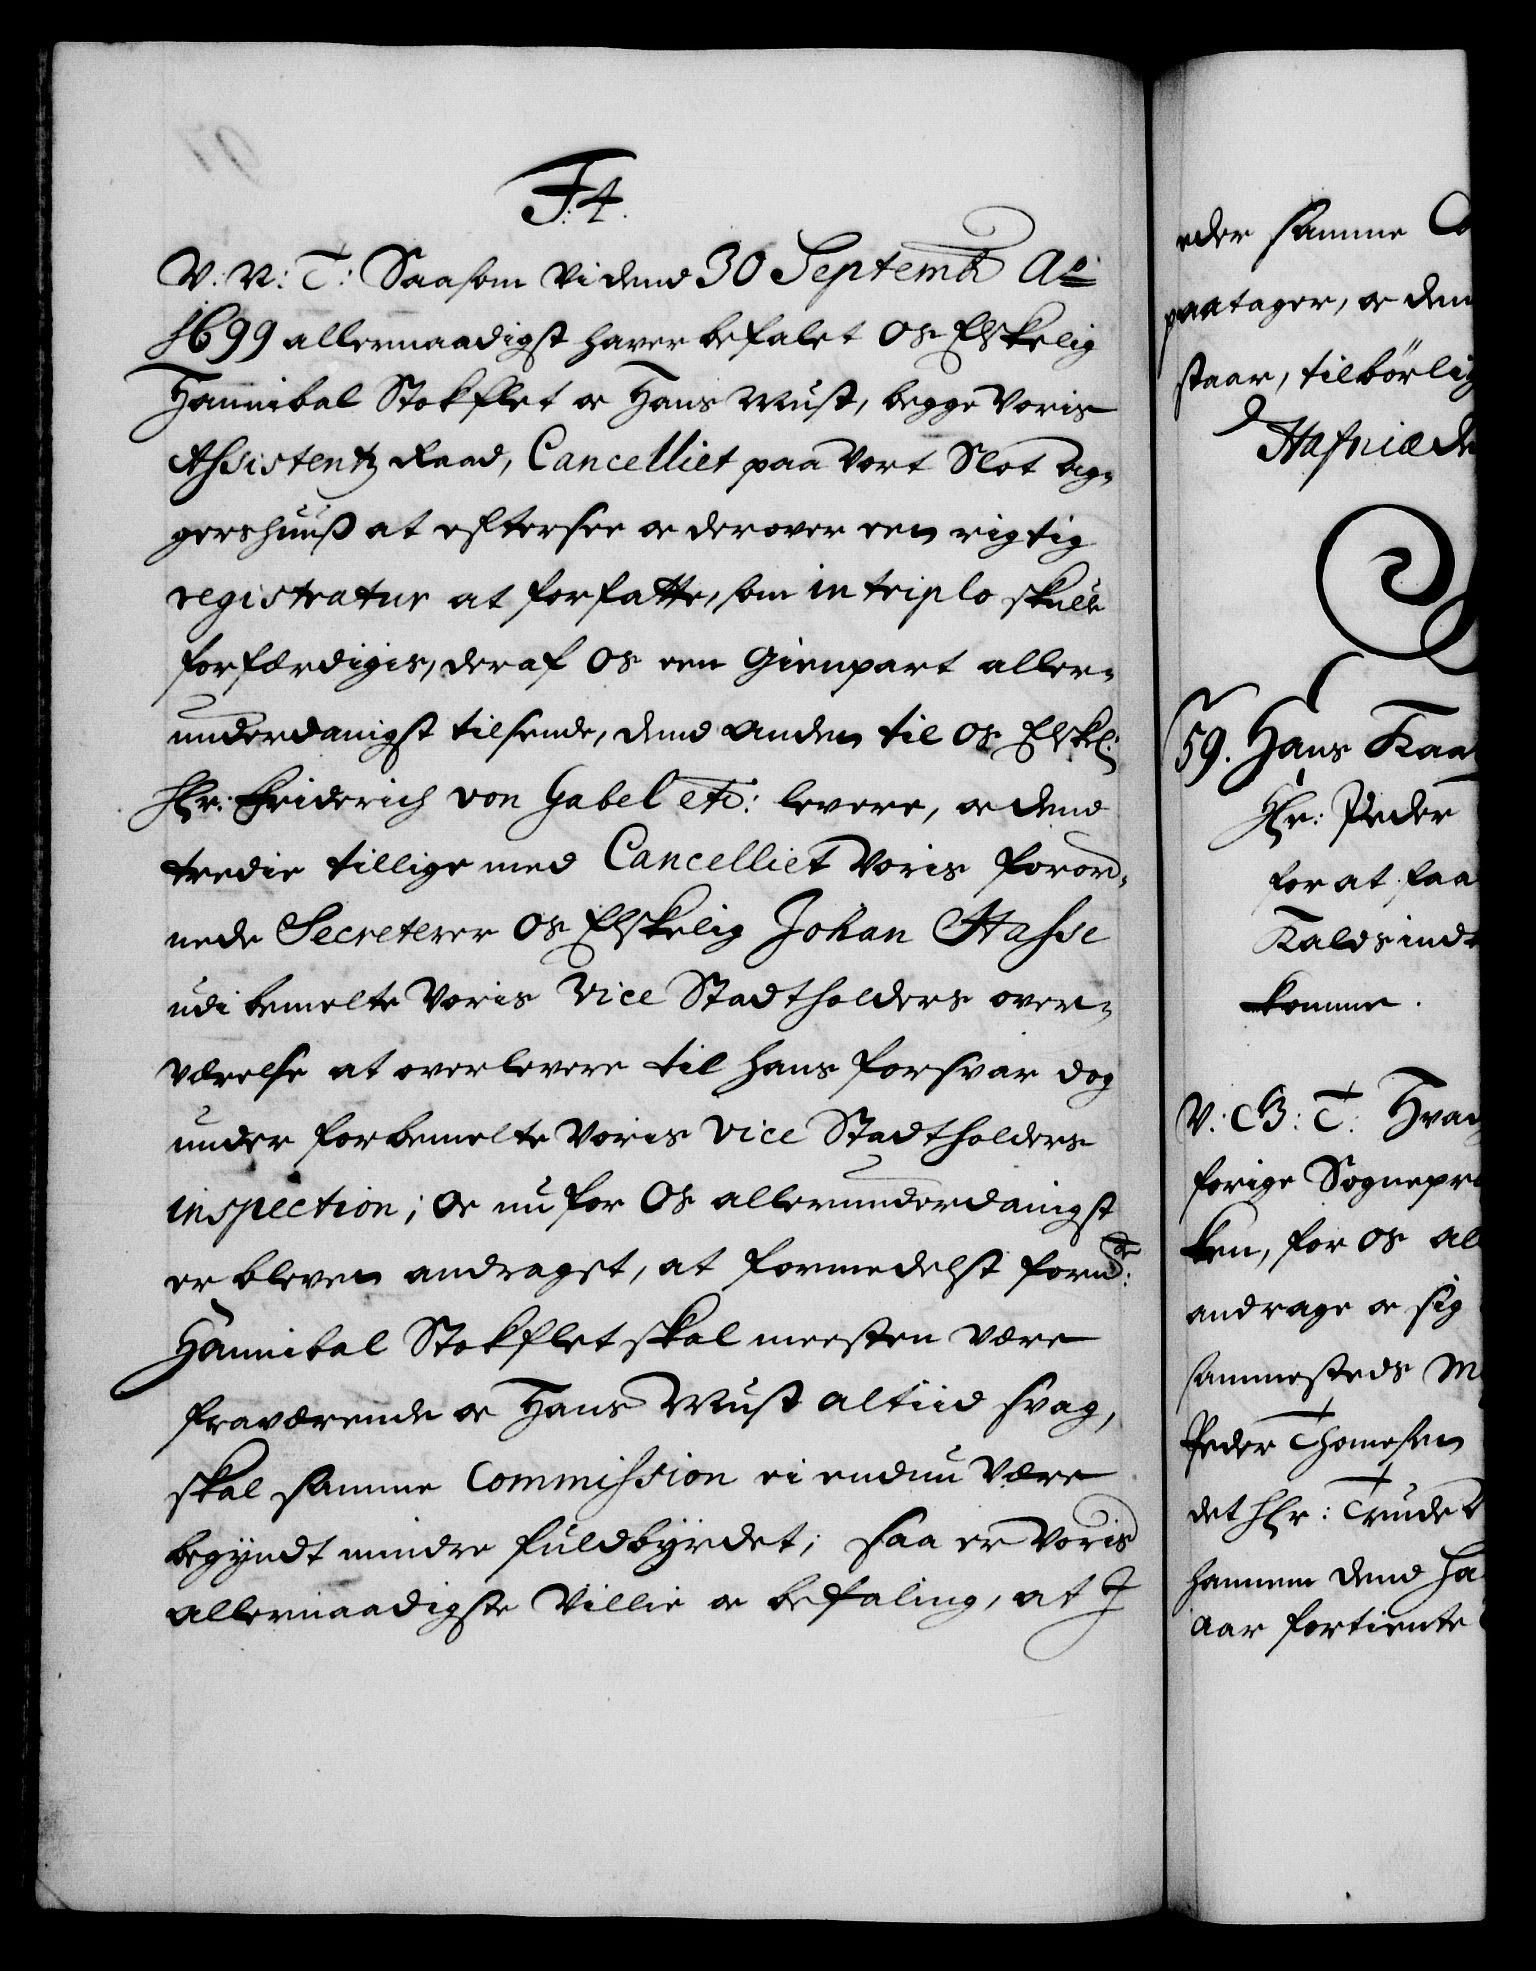 F:4.
V: V: T: Saasom Vi dend 30 Septembr Ao
1699 allernaadigst haver befalet Os Elskelig
Hannibal Stokflet oc Hans Must, begge Voris
Assistentz Raad, Cancelliet paa Vort Slot Ag-
gershuuß at eftersee oc derover een rigtig
registratur at forfatte, som in triplo skulle
forfærdigis, deraf Os een Gienpart aller-
underdanigst tilsende, dend anden til Os Elskel:
Hr: Friderich von Gabel etc: levere, oc dend
tredie tillige med Cancelliet Voris forord-
nede Secreterer Os Elskelig Johan Hasse
udi bemelte Voris Vice Stadtholders over-
værelse at overlevere til hans forsvar dog
under forbemelte Voris Vice Stadtholders
inspection; Oc nu for Os allerunderdanigst
er bleven andraget, at formedelst fornte:
Hannibal Stokflet skal meesten være
fraværende oc Hans Must altiid svag,
skal samme Commission ei endnu være
begyndt mindre fuldbyrdet; saa er Voris
allernaadigste Villie oc befaling, at J
eder samme Co
paatager, oc dem
staar, tilbørlig
Hafniæ de
59. Hans Kaa
Hr: Peder
for at faa
Kalds ind
komme.
V: G: T: Hvad
forige Sognepr
ken, for Os al
andrage oc sig
sammesteds M
Peder Thomesen
det Hr: Trude
hannem dend ha
aar fortiente